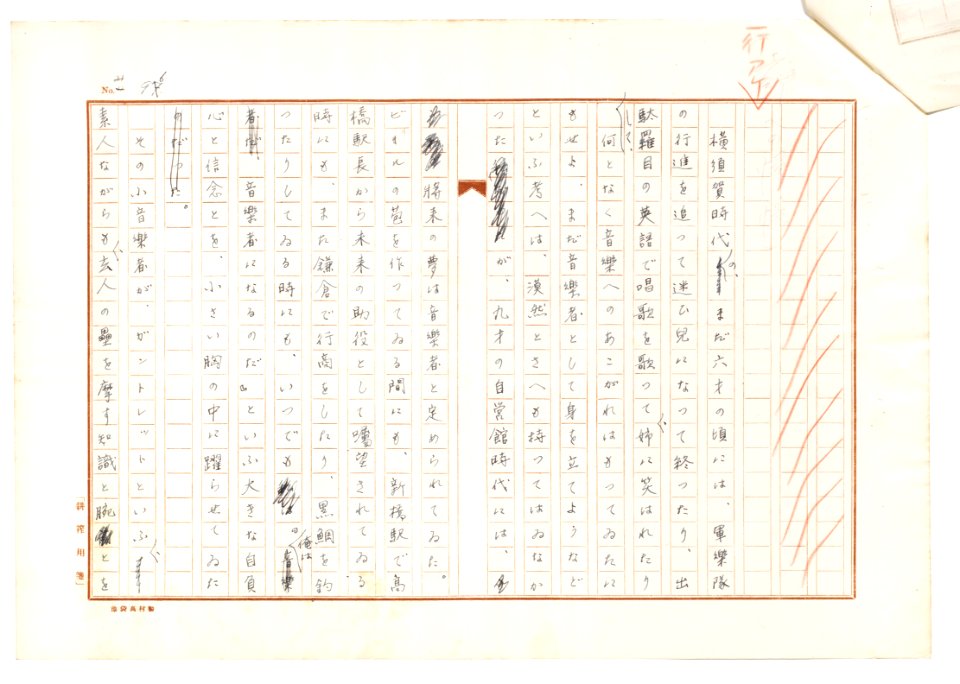 一行アケ
No. 96
横須賀時代の、まだ六才の頃には、軍樂隊
の行進を追つて迷ひ兒になつて終つたり、出
駄羅目の英語で唱歌を歌つて姉に笑はれたり
して、何となく音樂へのあこがれはもつてゐたに
もせよ、まだ音樂者として身を立てようなど
といふ考へは、漠然とさへも持つてはゐなか
つたが、九才の自営館時代には、
将来の夢は音樂者と定められてゐた。
ビールの苞を作つてゐる間にも、新橋駅で高
橋駅長から未来の助役として囑望されてゐる
時にも、また鎌倉で行商をしたり、黒鯛を釣
つたりしてゐる時にも、いつでも『俺は音樂
者だ、音樂者になるのだ』といふ大きな自負
心と信念とを、小さい胸の中に躍らせてゐた
のだつた。
その小音樂者が、ガントレットといふ
素人ながらも玄人の壘を摩す知識と腕とを